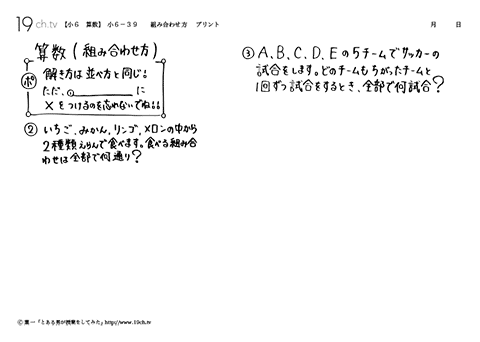 19 ch.tv 【小6 算数】 小6-39 組み合わせ方 プリント 月 日
算数(組み合わせ方)
ポ 解き方は並べ方と同じ!
ただ、① に
×をつけるのを忘れないでね!!
② いちご、みかん、リンゴ、メロンの中から
2種類えらんで食べます。食べる組み合
わせは全部で何通り?
③ A、B、C、D、Eの5チームでサッカーの
試合をします。どのチームもちがったチームと
1回ずつ試合をするとき、全部で何試合?
© 葉一「とある男が授業をしてみた」http://www.19ch.tv